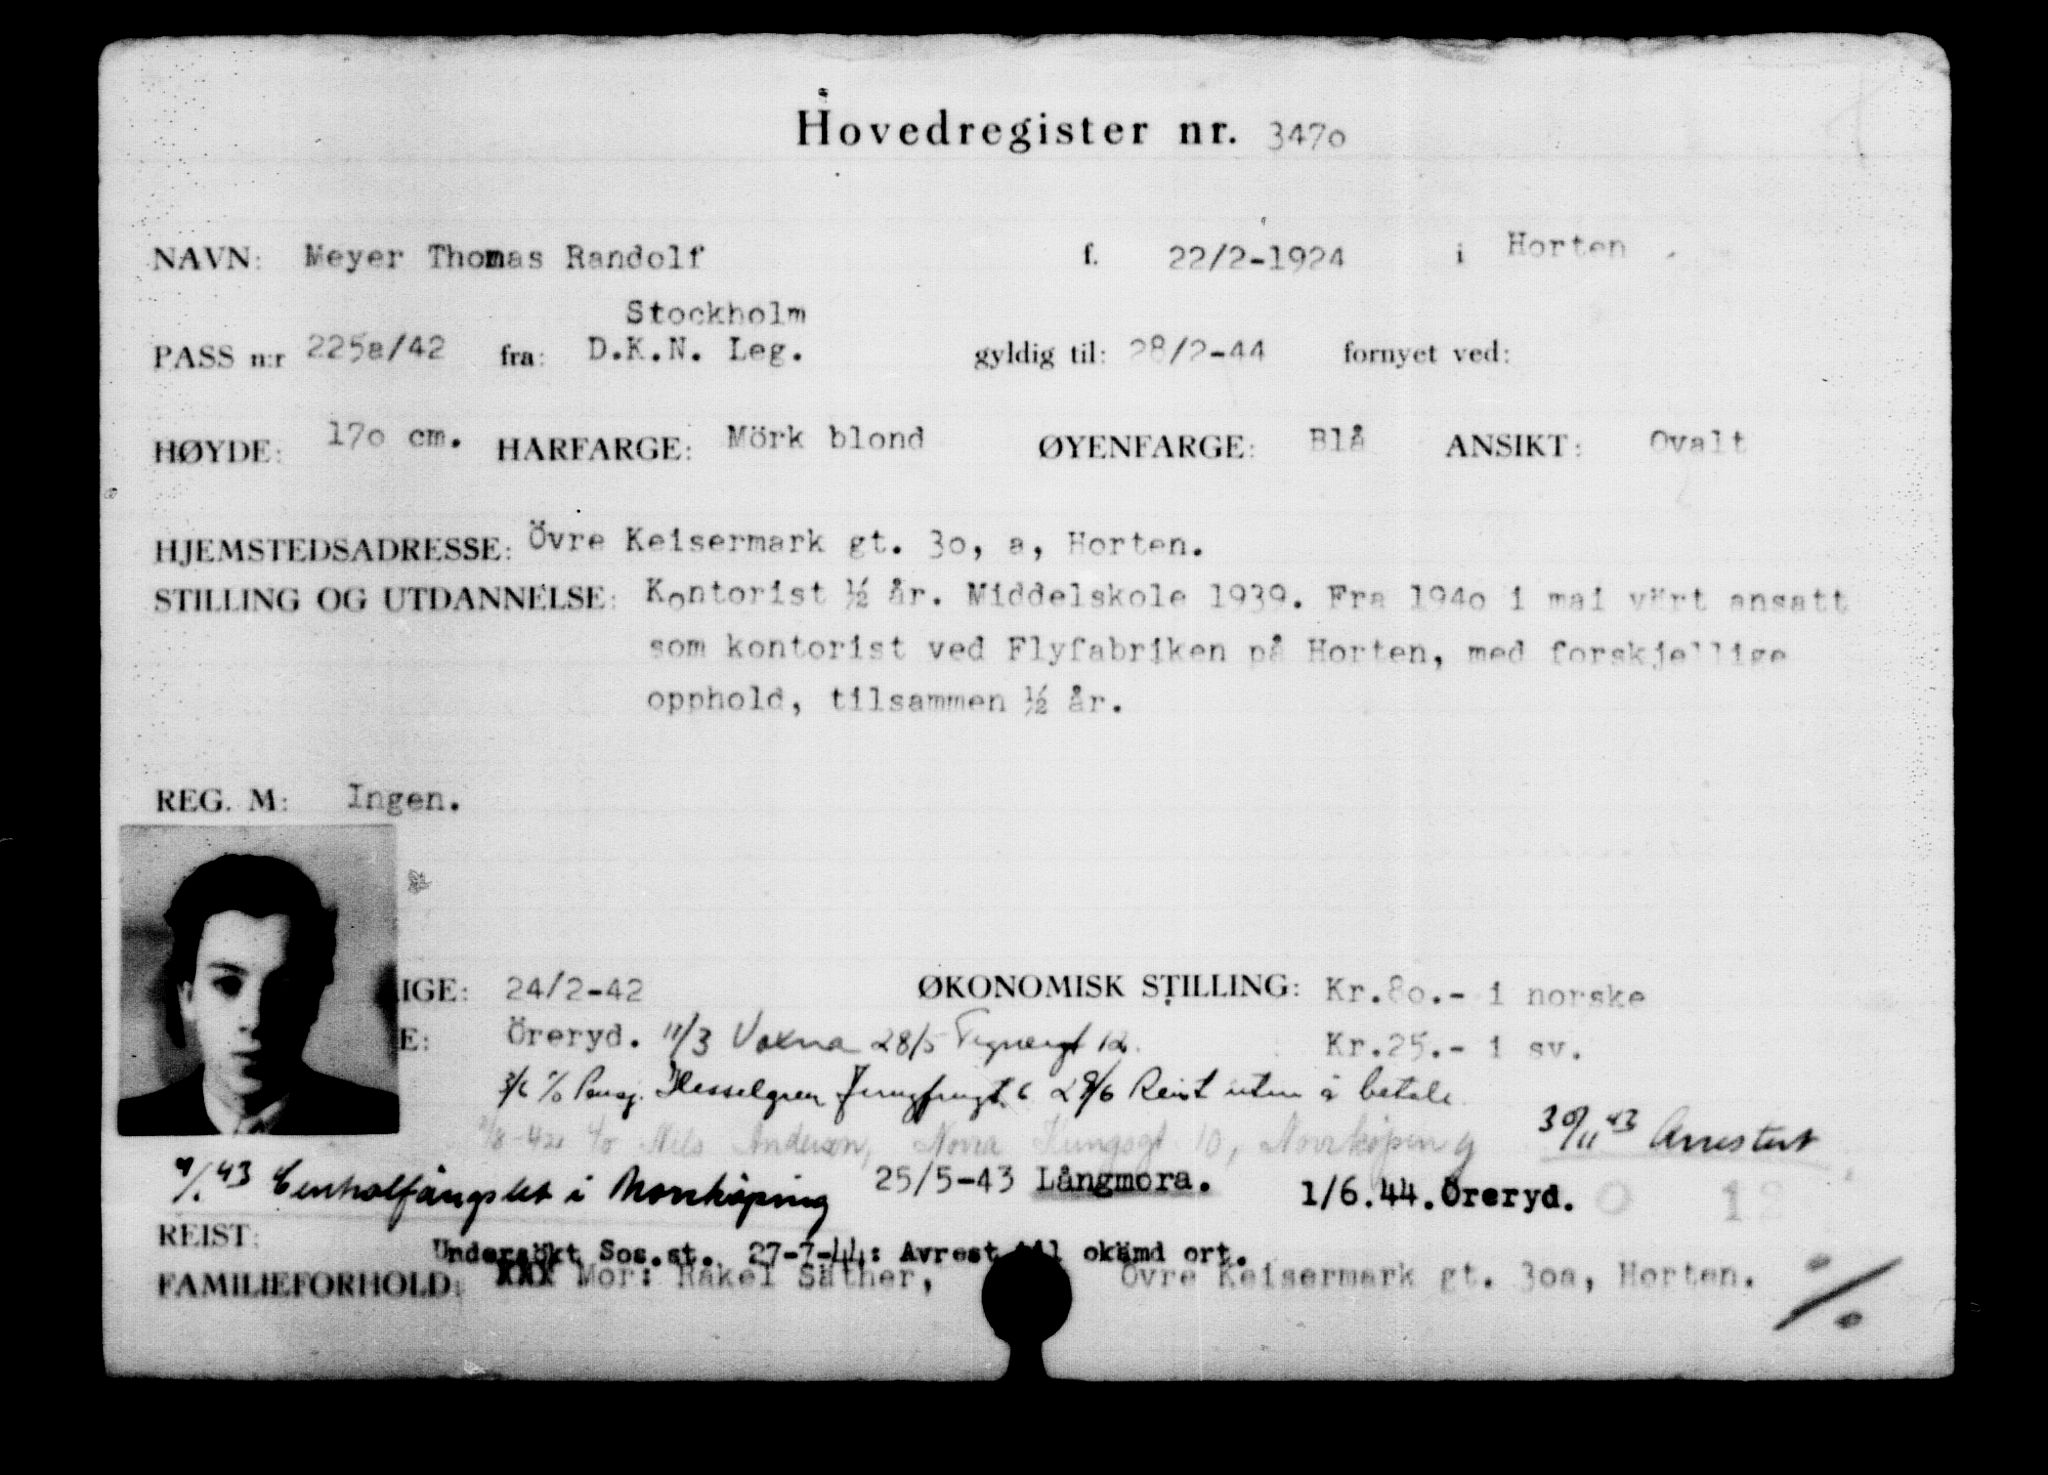 Hovedregister nr. 3470
NAVN: Meyer Thomas Randolf f. 22/2-1924 i Horten
Stockholm
PASS n:r 225a/42 fra: D.K.N. Leg. gyldig til: 28/2-44 fornyet ved:
HØYDE: 17o cm. HARFARGE: Mörk blond ØYENFARGE: Blå ANSIKT: Ovalt
HJEMSTEDSADRESSE: Övre Keisermark gt. 3o, a, Horten.
STILLING OG UTDANNELSE: Kontorist ½ år. Middelskole 1939. Fra 194o i mai värt ansatt
som kontorist ved Flyfabriken på Horten, med forskjellige
opphold, tilsammen ½ år.
REG. M: Ingen.
IGE: 24/2-42 ØKONOMISK STILLING: Kr.8o.- i norske
E: Öreryd. 11/3 Voxna 28/5 Tegnergt 12. Kr.25.- i sv.
3/6 c/o Pensj. Hesselgren Jungfrugt. 6 29/6 Reist uten å betale
c/o Nils Anderson, Norra Kungsgt 10, Norrköping 30/11 43 Arrestert
43 Centralfängslet i Norrköping 25/5-43 Långmora. 1/6.44.Öreryd.
REIST:
Undersökt Sos.st. 27-7-44: Avrest til okämd ort.
FAMILIEFORHOLD: XXX Mor: Rakel Säther, Övre Keisermark gt. 3oa, Horten.
%